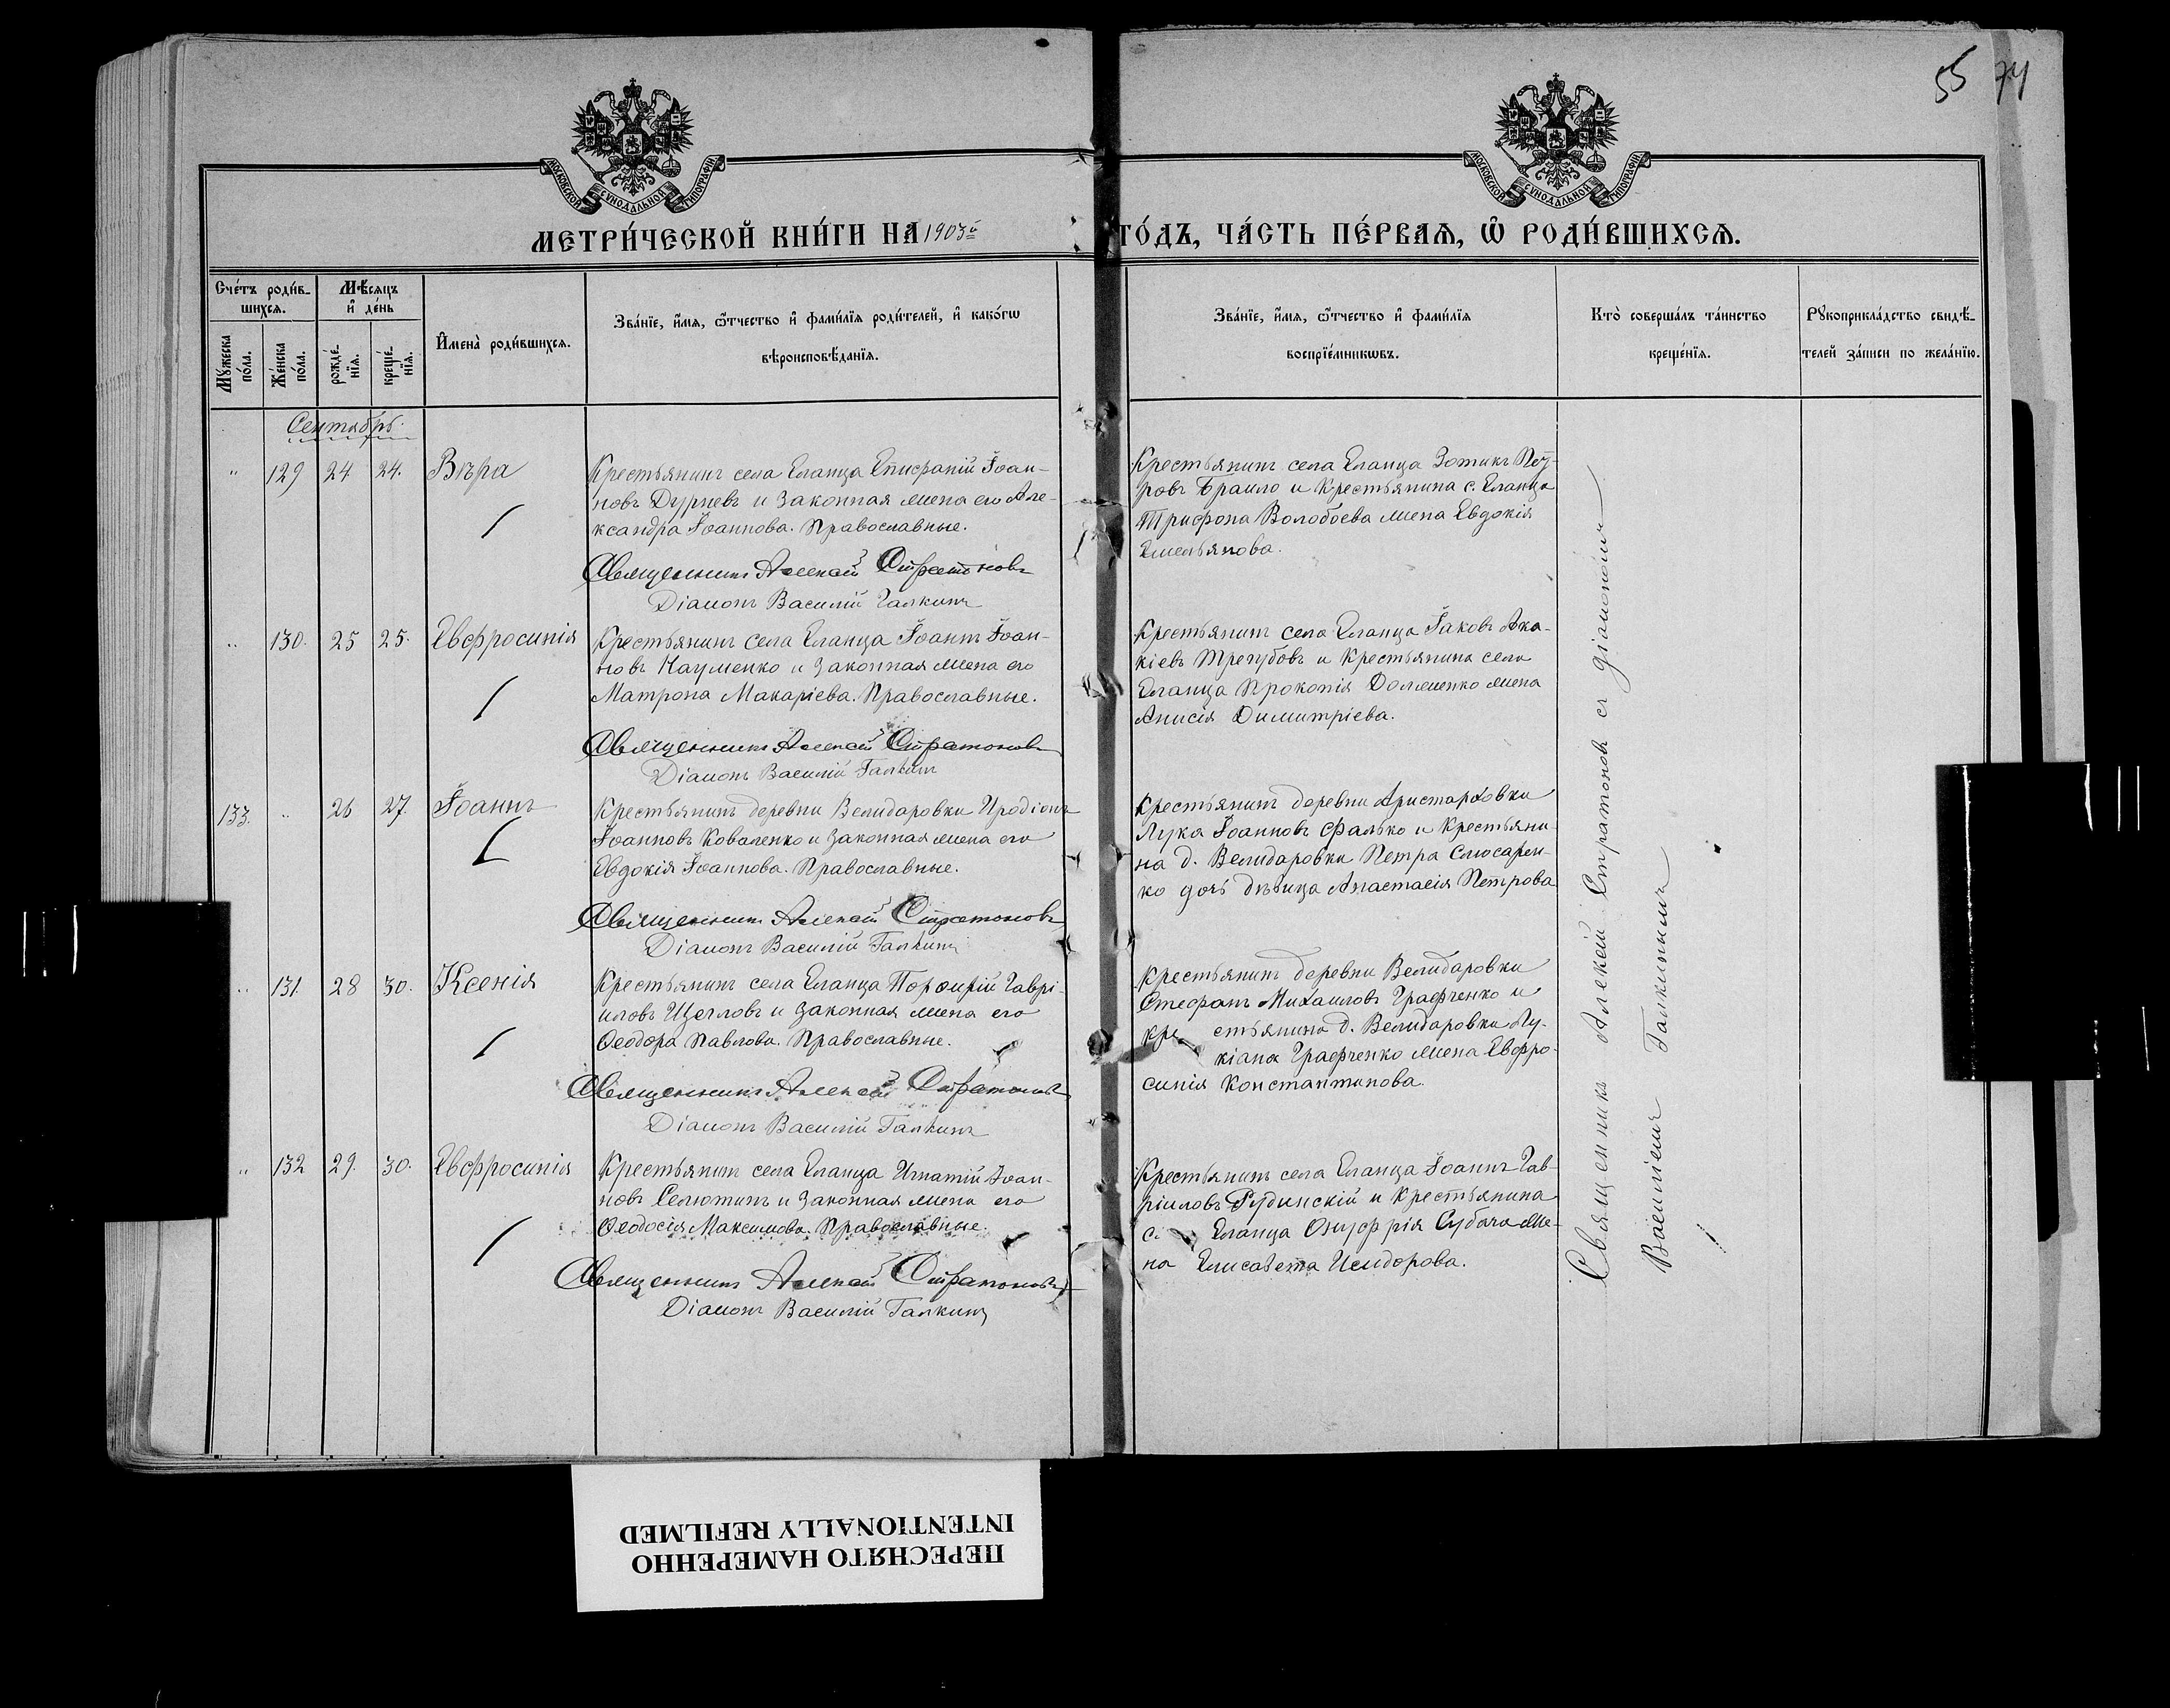 55 74
МОСКОВСКОЙ СУНОДАЛЬНОЙ ТИПОГРАФІИ
МОСКОВСКОЙ СУНОДАЛЬНОЙ ТИПОГРАФІИ
МЕТРИ́ЧЕСКОЙ КНИ́ГИ НА 1903й
ГО́ДЪ, ЧА́СТЬ ПЕ́РВАѦ, Ѡ҆ РОДИ́ВШИХСѦ.
Сче́тъ роди́в-
шихсѧ.
Мꙋ́жеска по́ла.
Же́нска по́ла.
Мѣ́сѧцъ
и҆ де́нь
рожде́-
нїѧ.
креще́-
нїѧ.
И҆мена̀ роди́вшихсѧ.
Зва́нїе, и҆́мѧ, ѻ҆́тчество и҆ фами́лїѧ роди́телей, и҆ како́гѡ
вѣроисповѣ́данїѧ.
Зва́нїе, и҆́мѧ, ѻ҆́тчество и҆ фами́лїѧ
воспрїе́мникѡвъ.
Кто̀ соверша́лъ та́инство
креще́нїѧ.
Рꙋкоприкла́дство свидѣ́-
телей за́писи по жела́нїю.
Сентябрь.
" 129 24 24. Вѣра
Крестьянинъ села Еланца Епифаній Іоан-
новъ Дурневъ и законная жена его Але-
ксандра Іоаннова. Православные.
Священникъ Алексій Стратоновъ
Діаконъ Василій Галкинъ
Крестьянинъ села Еланца Зотикъ Пет-
ровъ Браило и крестьянина с. Еланца
Трифона Волобоева жена Евдокія
Емельянова.
" 130. 25 25. Евфросинія
Крестьянинъ села Еланца Іоаннъ Іоан-
новъ Науменко и законная жена его
Матрона Макаріева. Православные.
Священникъ Алексій Стратоновъ
Діаконъ Василій Галкинъ
Крестьянинъ села Еланца Іаковъ Ака-
кіевъ Трегубовъ и крестьянина села
Еланца Прокопія Долженко жена
Анисія Димитріева.
133. " 26 27. Іоаннъ
Крестьянинъ деревни Велидаровки Иродіонъ
Іоанновъ Коваленко и законная жена его
Евдокія Іоаннова. Православные.
Священникъ Алексій Стратоновъ
Діаконъ Василій Галкинъ
Крестьянинъ деревни Аристарховки
Лука Іоанновъ Фалько и крестьяни-
на д. Велидаровки Петра Слюсарен-
ко дочь дѣвица Анастасія Петрова
" 131. 28 30. Ксенія
Крестьянинъ села Еланца Порфирій Гаврі-
иловъ Щегловъ и законная жена его
Ѳеодора Павлова. Православные.
Священникъ Алексій Стратоновъ
Діаконъ Василій Галкинъ
Крестьянинъ деревни Велидаровки
Стефанъ Михаиловъ Графченко и
кре стьянина д. Велидаровки Лу-
кіана Графченко жена Евфро-
синія Константинова.
" 132 29. 30. Евфросинія
Крестьянинъ села Еланца Игнатій Іоан-
новъ Селютинъ и законная жена его
Ѳеодосія Максимова. Православные.
Священникъ Алексій Стратоновъ
Діаконъ Василій Галкинъ
Крестьянинъ села Еланца Іоаннъ Гав-
ріиловъ Рудинскій и крестьянина
с. Еланца Онуфрія Субача же-
на Елисавета Исидорова.
Священникъ Алексій Стратоновъ съ діакономъ
Василіемъ Галкинымъ
ПЕРЕСНЯТО НАМЕРЕННО
INTENTIONALLY REFILMED